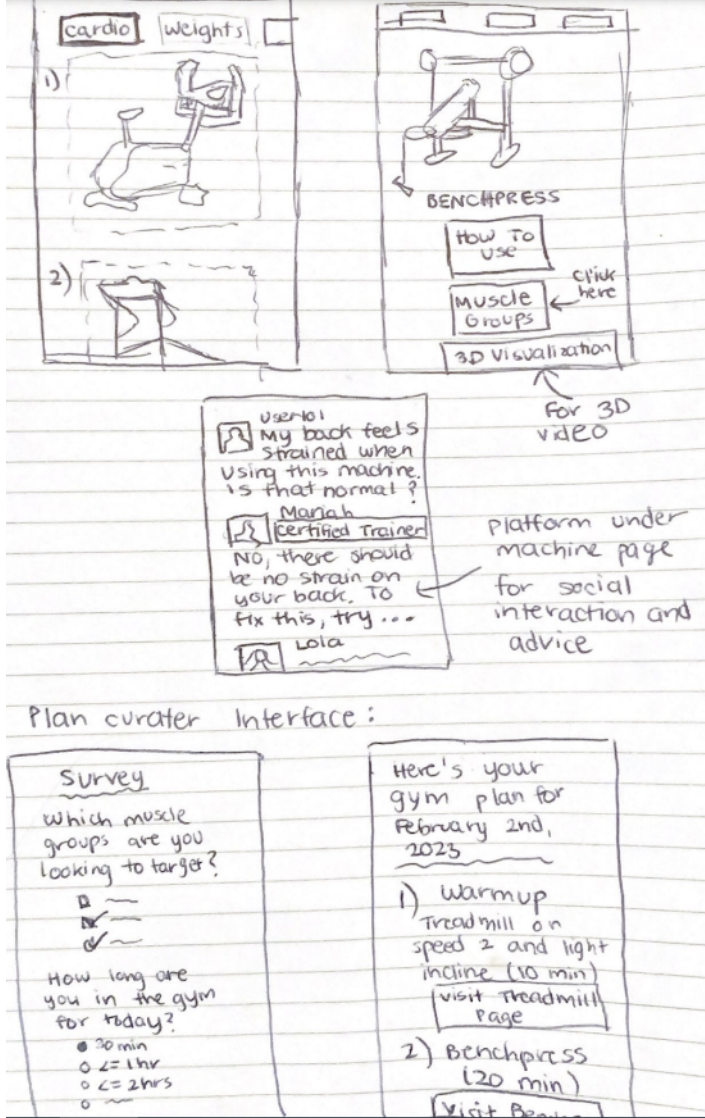 cardio weights
1)
2)
BENCHPRESS
How To
use
Muscle
Groups
click
here
3D Visualization
For 3D
video
User101
My back feels
strained when
using this machine.
is that normal?
Mariah
certified Trainer
No, there should
be no strain on
your back. To
fix this, try ...
Lola
platform under
machine page
for social
interaction and
advice
Plan curater Interface:
Survey
which muscle
groups are you
looking to target?
How long are
you in the gym
for today?
30 min
<= 1hr
<= 2hrs
Here's your
gym plan for
February 2nd,
2023
1) warmup
Treadmill on
speed 2 and light
incline (10 min)
visit Treadmill
Page
2) Benchpress
(20 min)
Visit